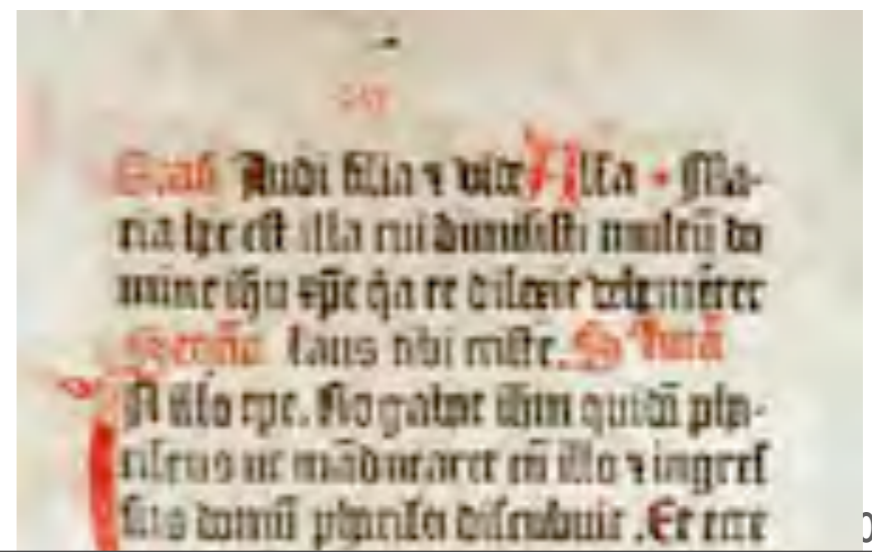 Audi filia ⁊ vide Alla Ma-
ria hec est illa cui dimisisti multū do
mine ihū xp̄e q̄a te dilexit
Laus tibi criste. S
N illo tꝑe. Rogabat ihm quidā pha-
riseus ut māducaret cū illo ⁊ ingres
sus domū pharisei discubuit. Et ecce